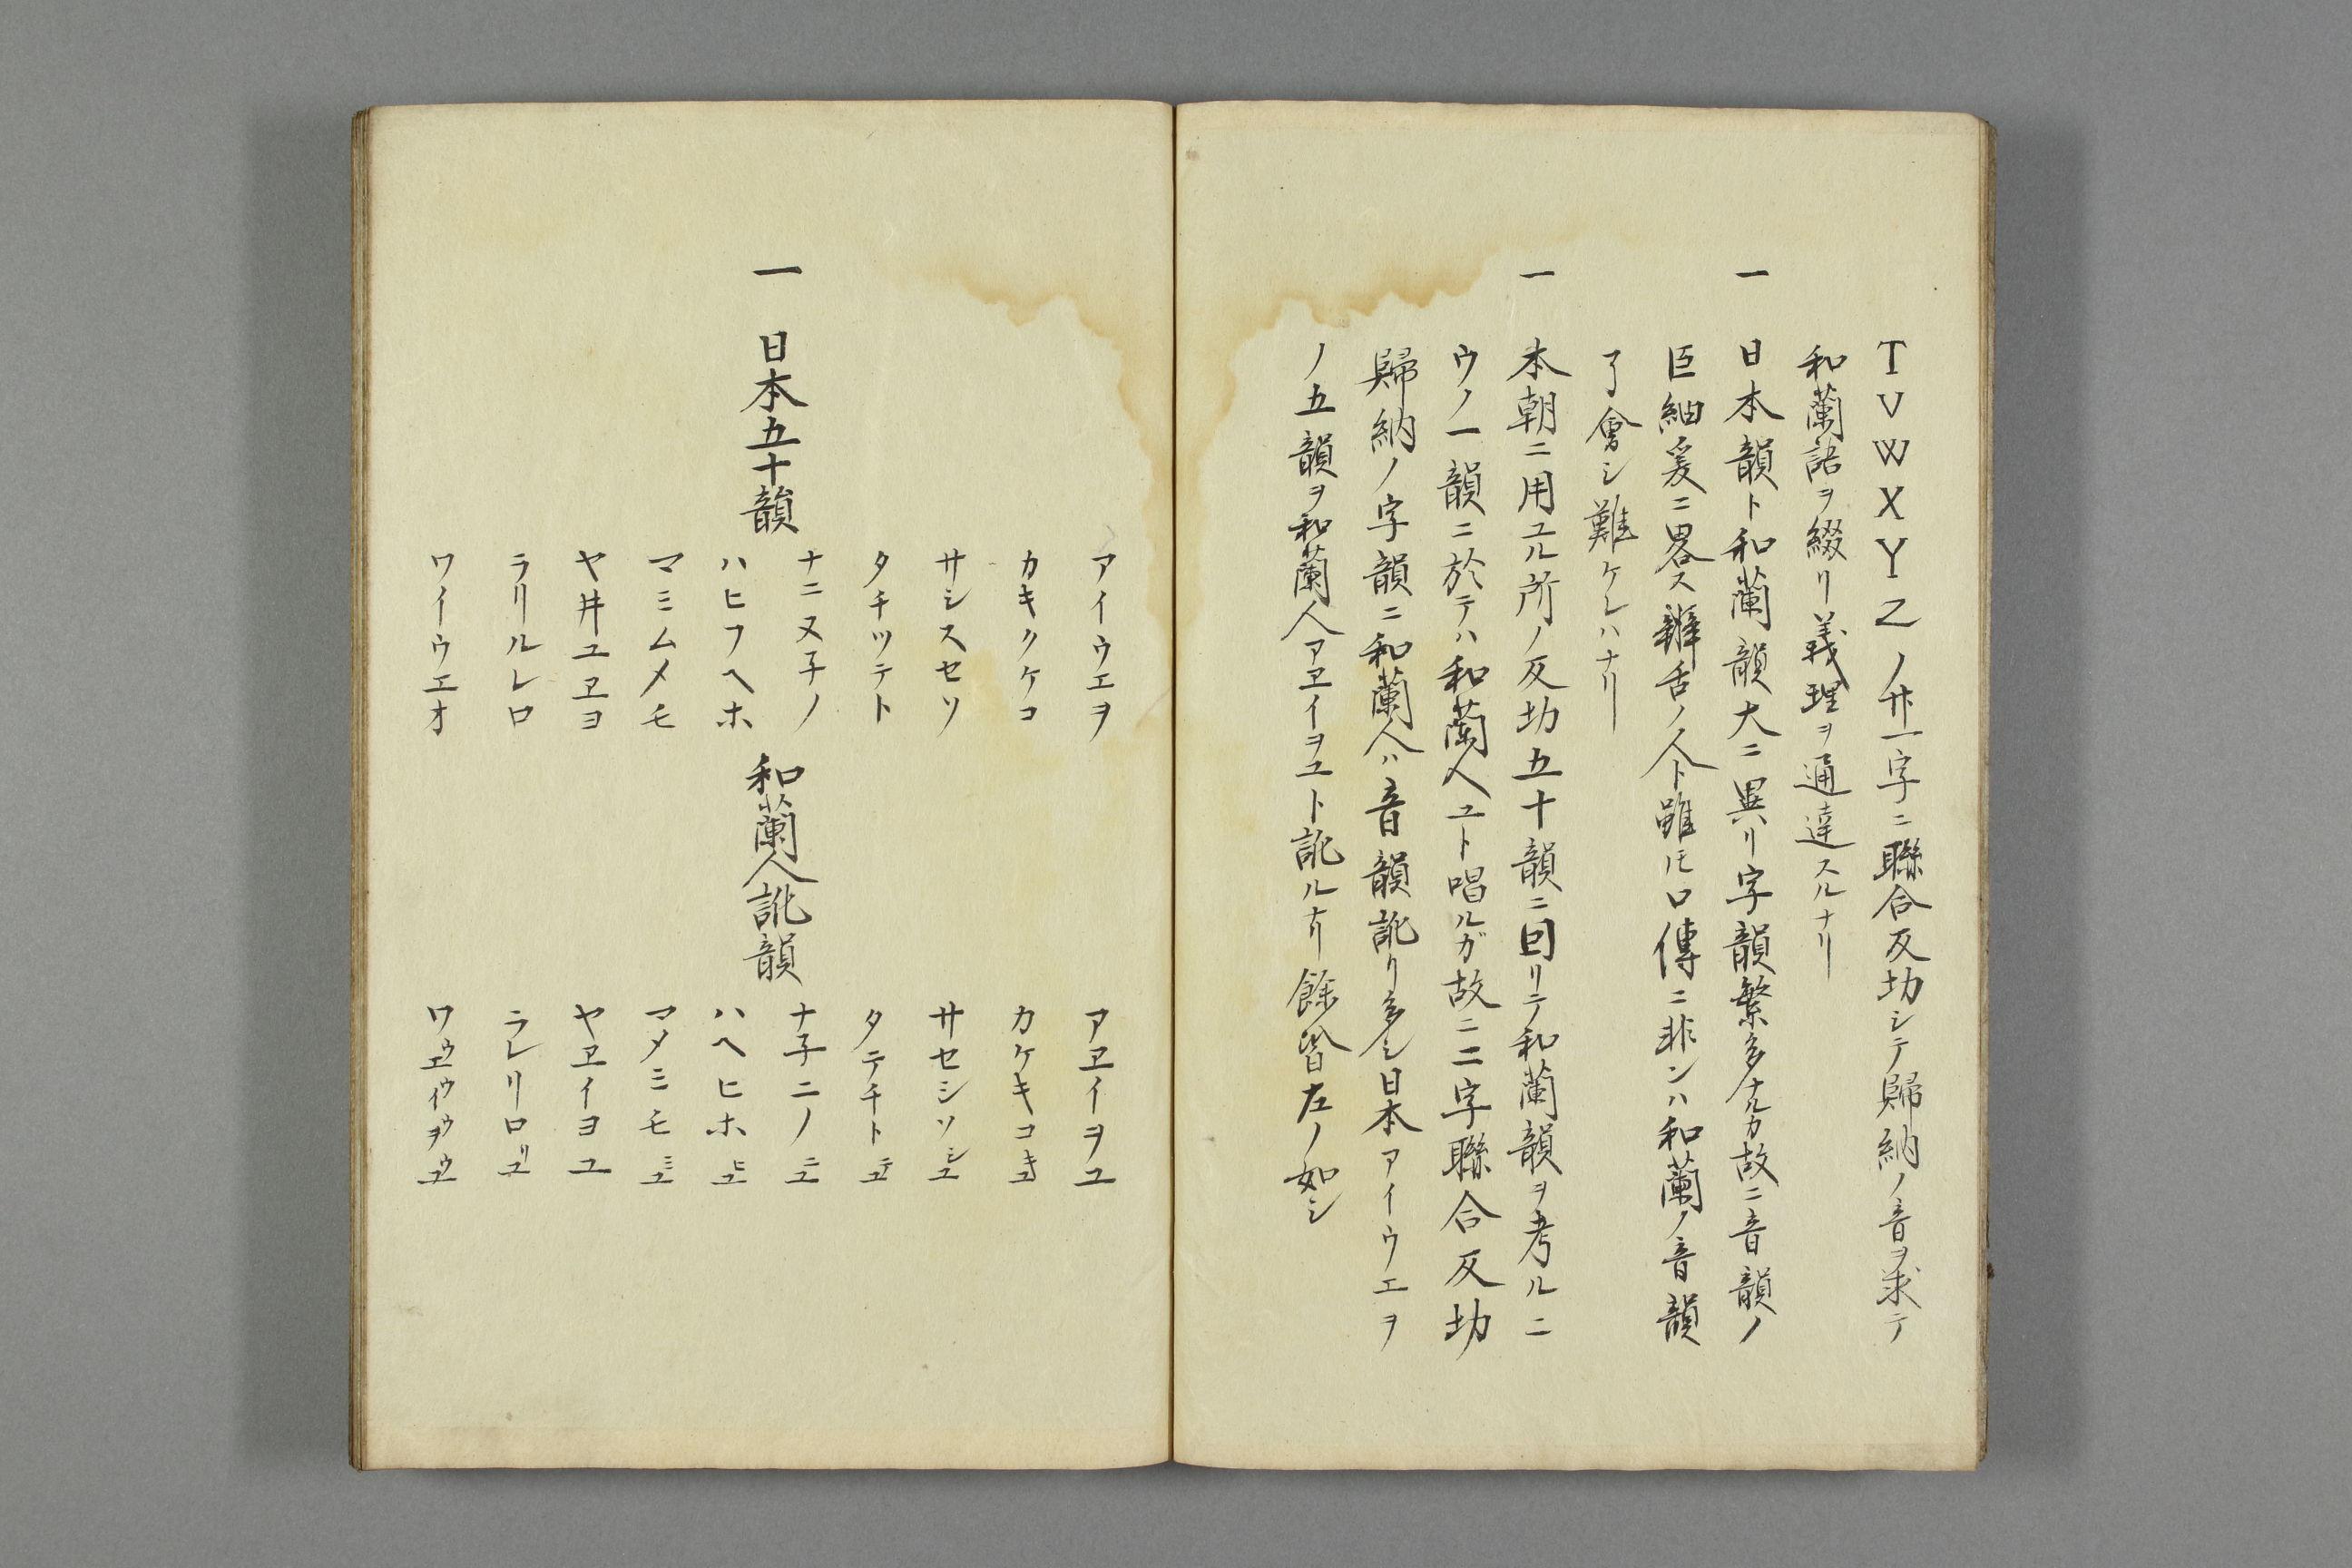 TVWXYZノ廿一字ニ聯合反功シテ歸納ノ音ヲ求テ
和蘭語ヲ綴リ義理ヲ通達スルナリ
一 日本韻ト和蘭韻大ニ異リ字韻繁多ナルカ故ニ音韻ノ
臣細爰ニ畧ス辨舌ノ人ト雖モ口傳ニ非ンハ和蘭ノ音韻
了會シ難ケレハナリ
一 本朝ニ用ユル所ノ反功五十韻ニ因リテ和蘭韻ヲ考ルニ
ウノ一韻ニ於テハ和蘭人ユト唱ルガ故ニ二字聯合反功
歸納ノ字韻ニ和蘭人ハ音韻訛リ多シ日本アイウエヲ
ノ五韻ヲ和蘭人アヱイヲユト訛ルナリ餘皆左ノ如シ
一 日本五十韻
アイウエヲ
カキクケコ
サシスセソ
タチツテト
ナニヌ子ノ
ハヒフヘホ
マミムメモ
ヤ井ユヱヨ
ラリルレロ
ワイウエオ
和蘭人訛韻
アヱイヲユ
カケキコキユ
サセシソシユ
タテチトテユ
ナ子ニノニユ
ハヘヒホヒユ
マメミモミユ
ヤヱイヨユ
ラレリロリユ
ワウヱウイウヲウユ